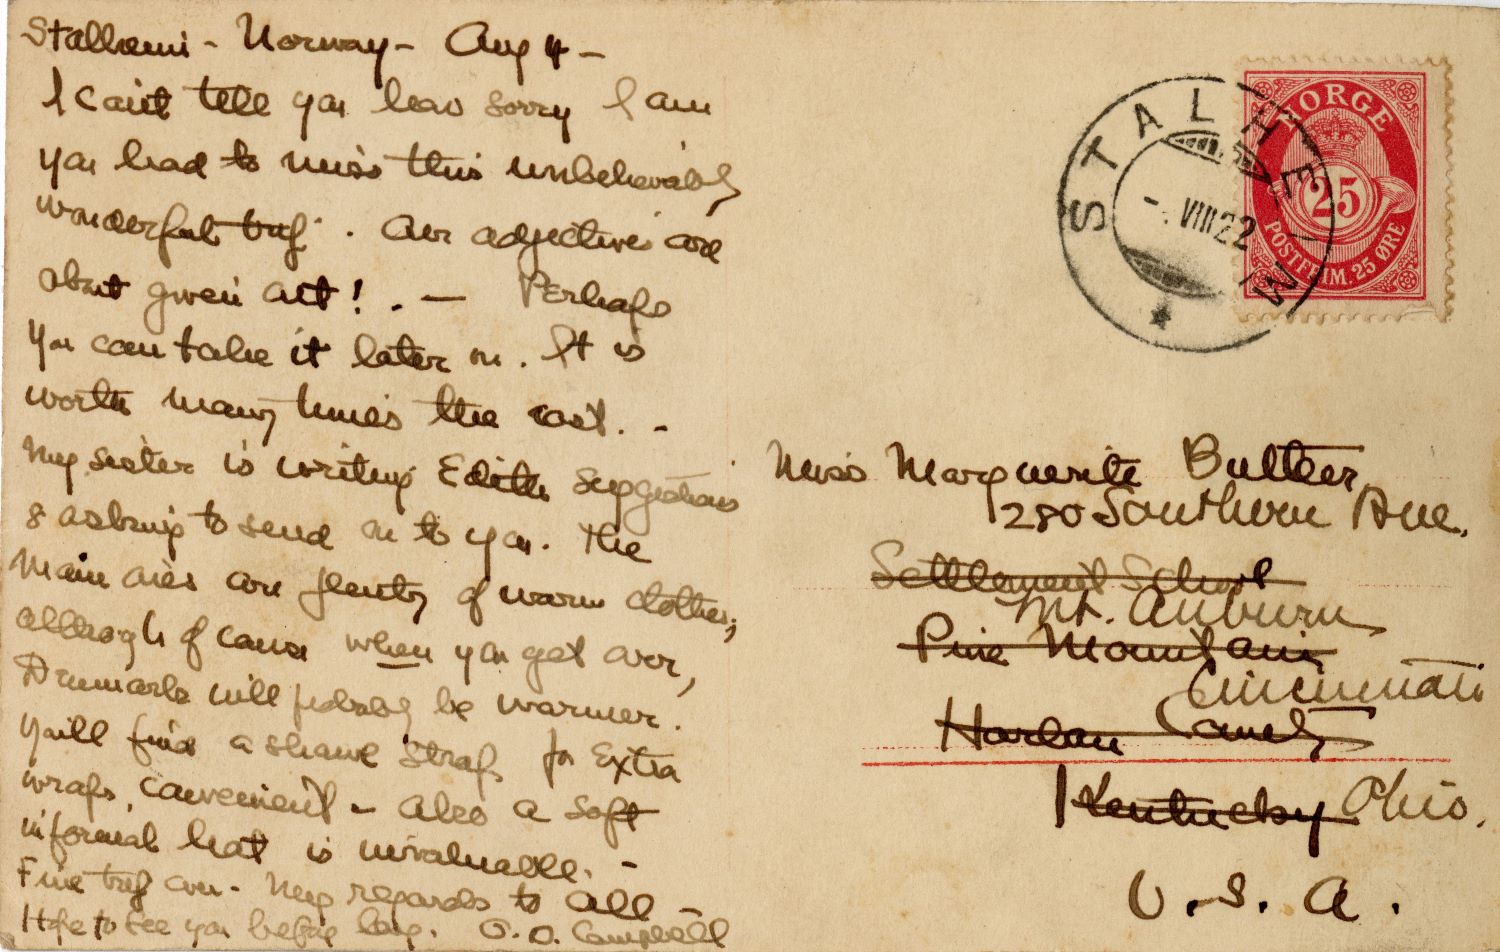 Stalheim - Norway - Aug 4 -
I can't tell you how sorry I am
you had to miss this unbelievably
wonderful trip. Our adjectives are
about given out! . - Perhaps
you can take it later on. It is
worth many times the cost. -
My sister is writing Edith suggestions
& asking to send on to you. The
main ones are plenty of warm clothes,
although of course when you get over,
Denmark will probably be warmer.
You'll find a shawl strap for extra
wraps, convenient - also a soft
informal hat is invaluable. -
Fine trip over - My regards to all -
Hope to see you before long. O. D. Campbell
STALHEIM
VIII 22
NORGE
25
POSTFRIM. 25 ØRE
Miss Marguerite Butler
280 Southern Ave.
Settlement School
Mt. Auburn
Pine Mountain
Cincinnati
Harlan County
Kentucky Ohio.
U. S. A.